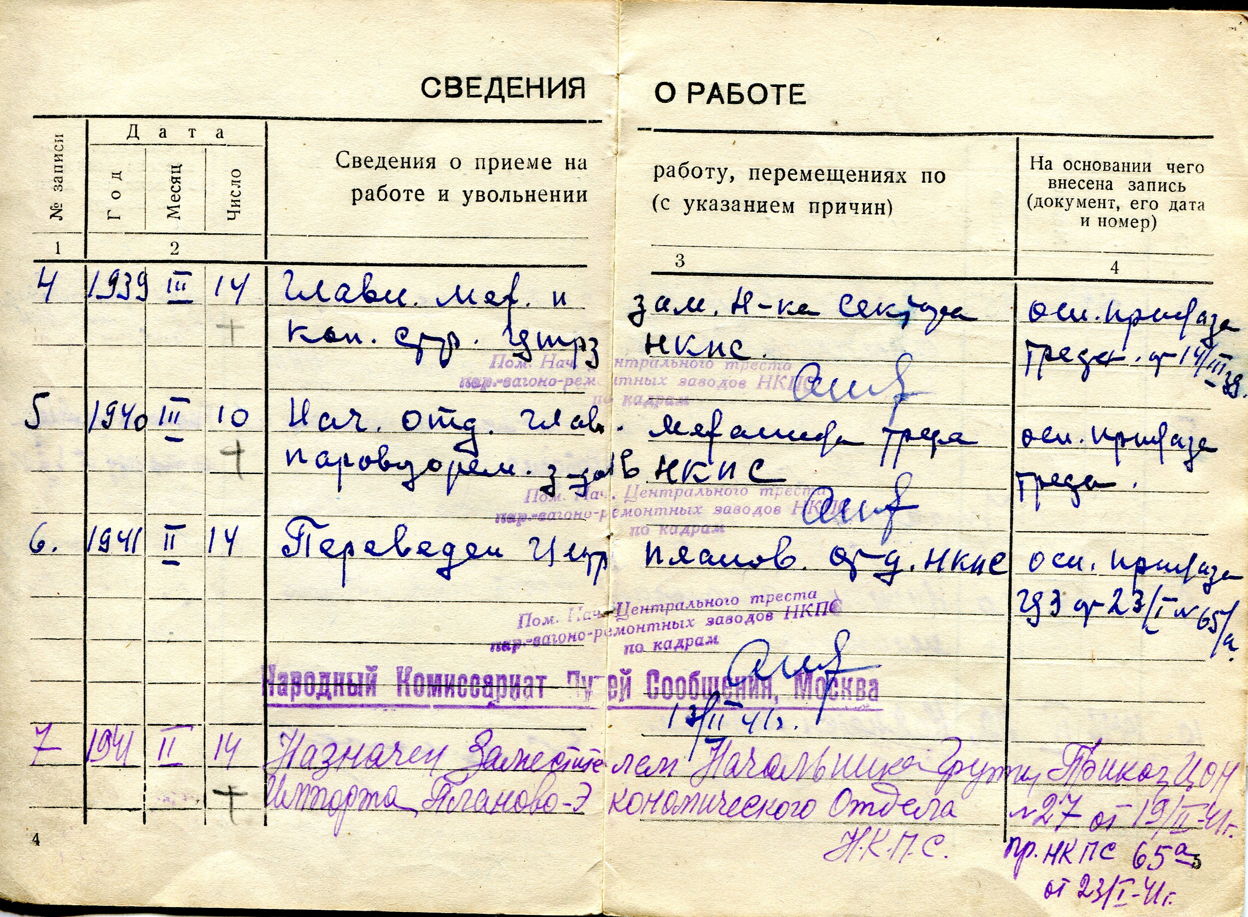 СВЕДЕНИЯ О РАБОТЕ
№ записи
Дата
Год
Месяц
Число
Сведения о приеме на работу, перемещениях по
работе и увольнении (с указанием причин)
На основании чего
внесена запись
(документ, его дата
и номер)
1 2 3 4
4 1939 III 14 Главн. мех. и зам. Н-ка сектора осн. приказа
кон. стр. Цтрз НКПС. треста. от 14/III 39.
Пом. Нач. Центрального треста
пар.-вагоно-ремонтных заводов НКПС
по кадрам
5 1940 III 10 Нач. отд. глав. механика треста осн. приказа
паровозорем. з-дов НКПС треста.
Пом. Нач. Центрального треста
пар.-вагоно-ремонтных заводов НКПС
по кадрам
6. 1941 II 14 Переведен Центр планов. отд. НКПС осн. приказа
ЦЗ от 23/I № 65/а.
Пом. Нач. Центрального треста
пар.-вагоно-ремонтных заводов НКПС
по кадрам
Народный Комиссариат Путей Сообщения, Москва
13/II 41г.
7 1941 II 14 Назначен Заместителем Начальника Группы Приказ ЦОН
Импорта Планово-Экономического Отдела №27 от 19/II-41г.
Н.К.П.С. пр. НКПС 65а
от 23/I-41г.
4 5